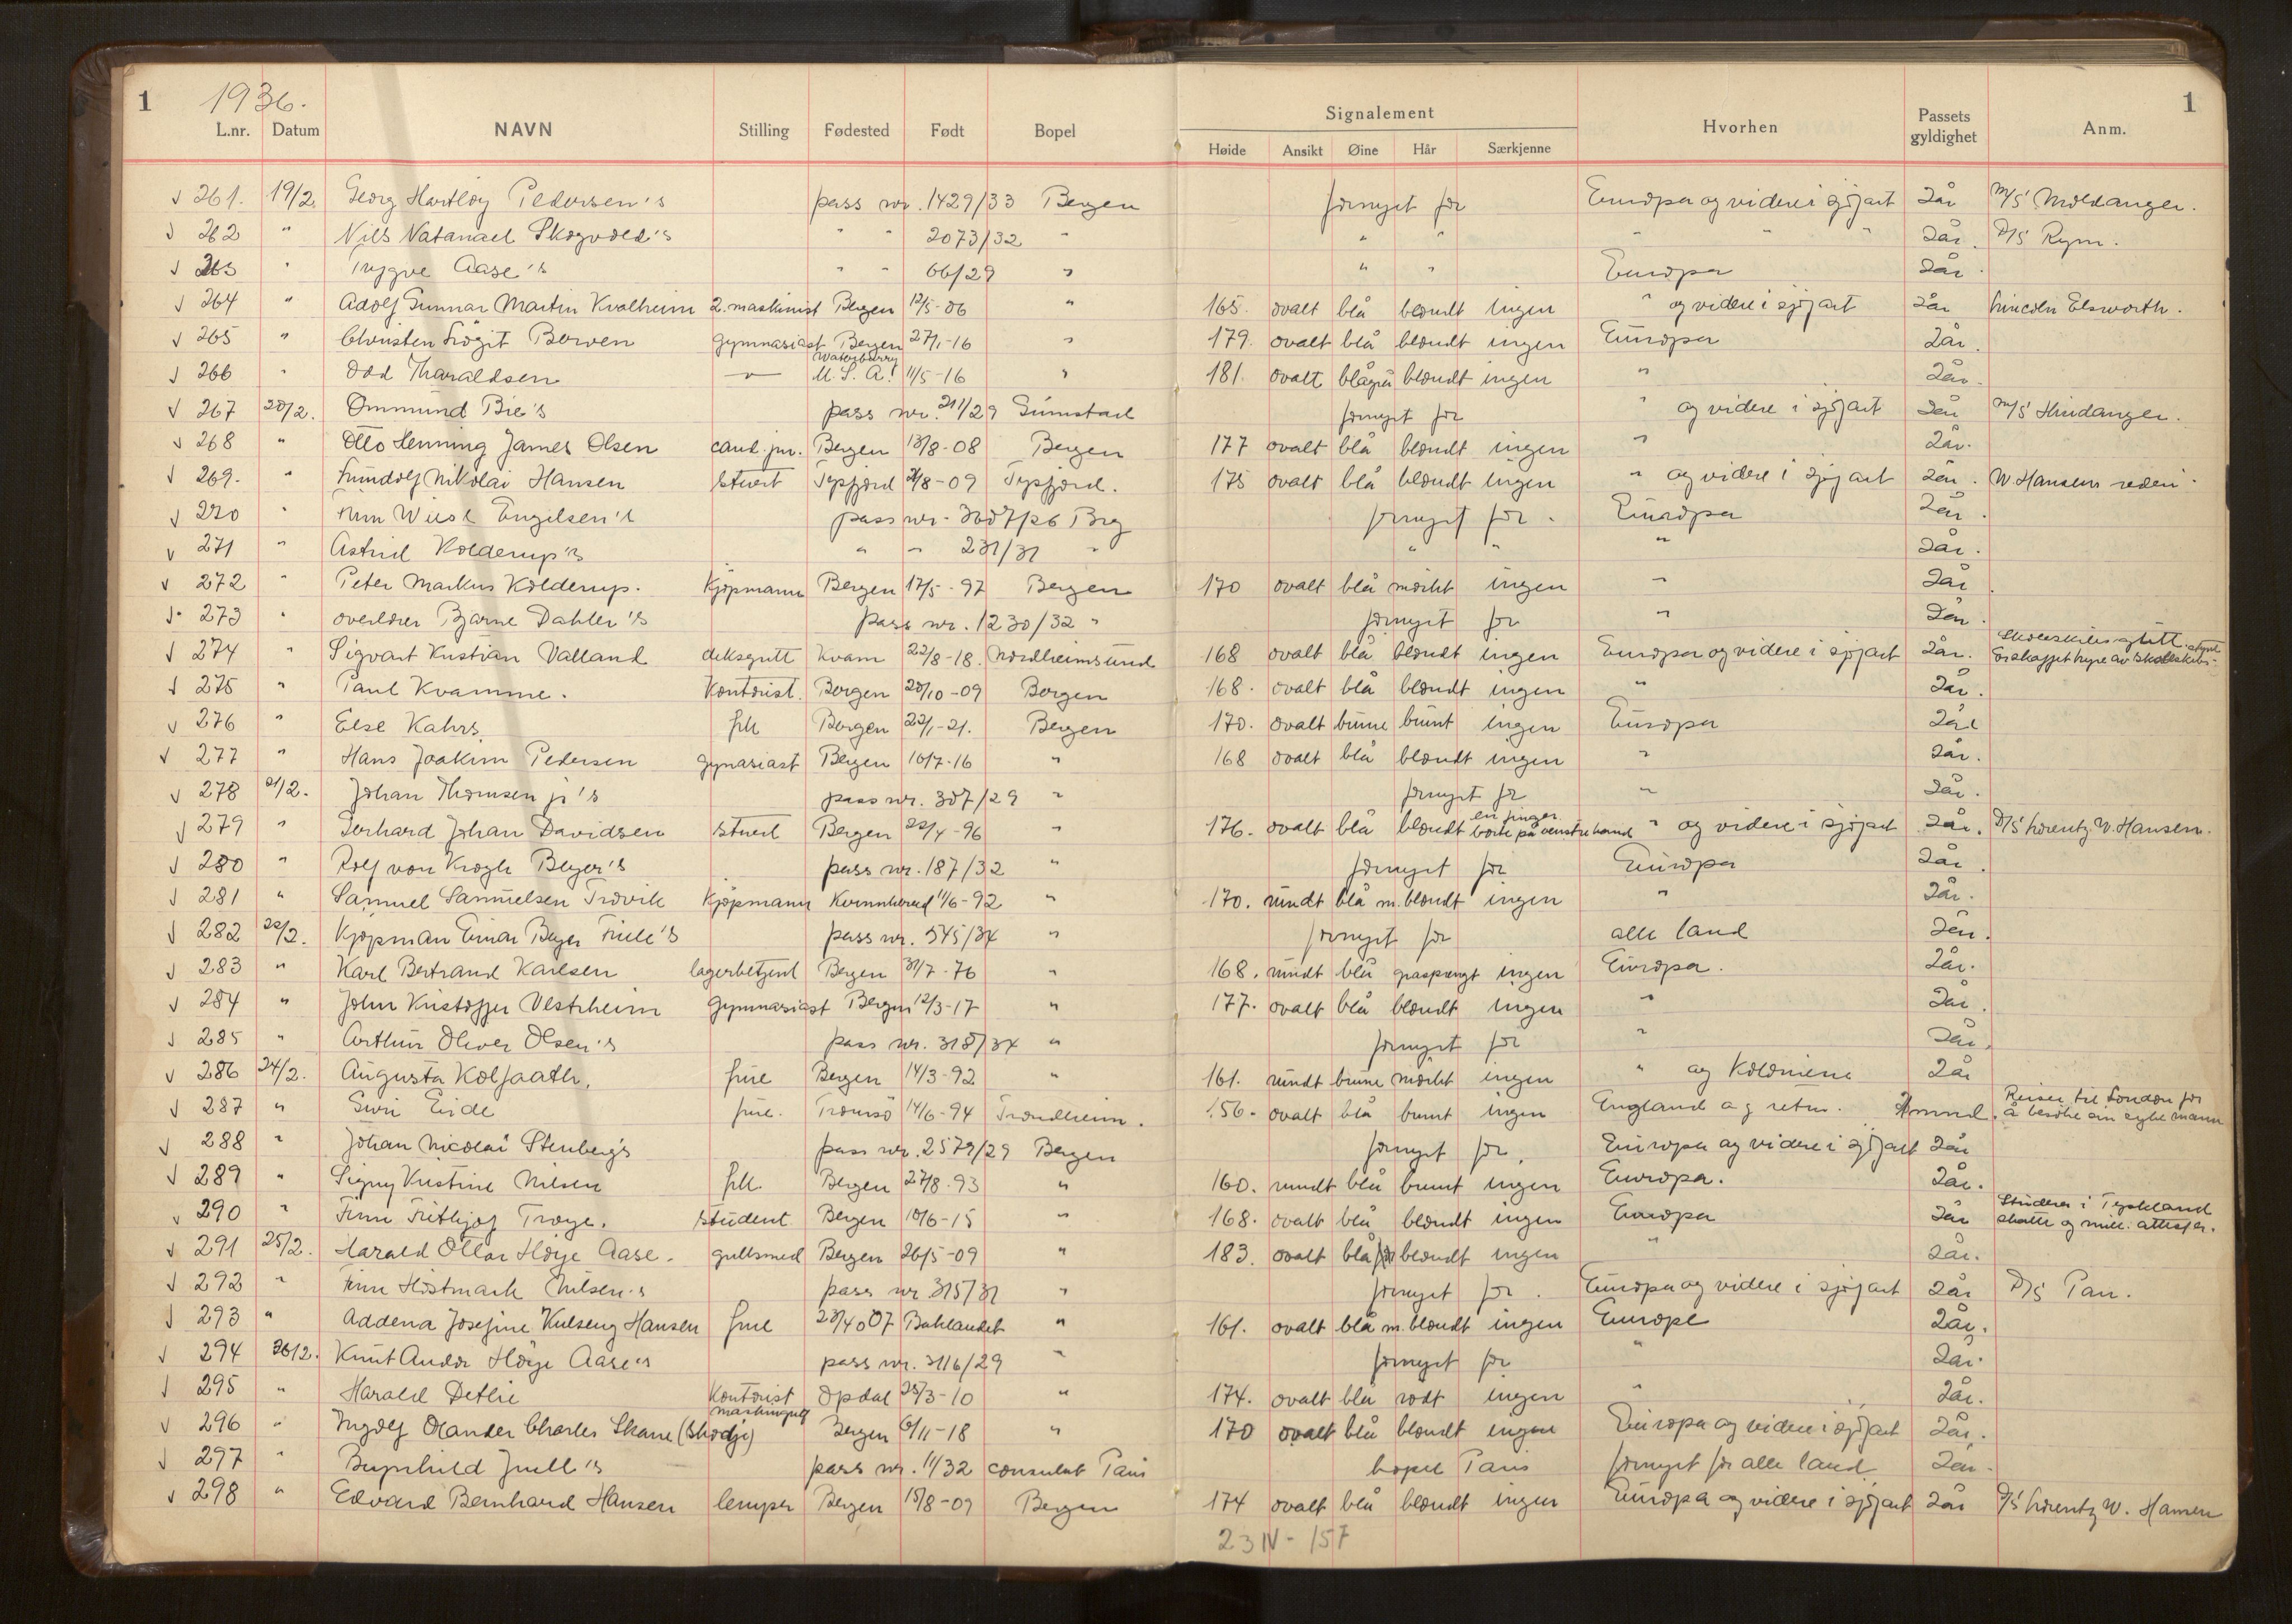 1 1936. 1
Signalement
L.nr. Datum NAVN Stilling Fødested Født Bopel Høide Ansikt Øine Hår Særkjenne Hvorhen Passets gyldighet Anm.
261. 19/2. Georg Hartløy Pedersen's pass nr. 1429/33 Bergen fornyet for Europa og videre i sjøfart 2 år M/S Moldanger.
262 " Nils Natanael Skogvold's " " 2073/32 " " " " " " 2 år. D/S Rym.
263 " Trygve Aase's " " 66/29 " " " Europa 2 år
264 " Adolf Gunnar Martin Kvalheim 2. maskinist Bergen 12/5-06 " 165. ovalt blå blondt ingen " og videre i sjøfart 2 år Lincoln Elsworth.
265 " Christen Borven gymnasiast Bergen 27/1-16 " 179. ovalt blå blondt ingen Europa 2 år.
266 " Odd Tharaldsen " Waterbury U.S.A. 11/5-16 " 181. ovalt blågrå blondt ingen " 2 år.
267 20/2. Ommund Bie's pass nr. 211/29 Grimstad fornyet for " og videre i sjøfart 2 år M/S Hindanger.
268 " Otto Henning James Olsen cand. jur. Bergen 13/8-08 Bergen 177 ovalt blå blondt ingen " 2 år.
269. " Lundolf Nikolai Hansen stuert Typfjord /8-09 Typfjord. 175 ovalt blå blondt ingen " og videre i sjøfart 2 år. W. Hansens rederi.
270 " Finn Wiese Engelsen's pass nr. Brg fornyet for. Europa 2 år.
271 " Astrid Kolderup's " " 231/31 " " " " 2 år.
272 " Peter Markus Kolderup. Kjøpmann Bergen 17/5-97 Bergen 170 ovalt blå mørkt ingen " 2 år.
273 " overlærer Bjarne Dahler's pass nr. 1230/32 " fornyet for " 2 år.
274 " Sigvart Kristian Valland deksgutt Kvam 22/8-18. Nordheimsund 168 ovalt blå blondt ingen Europa og videre i sjøfart 2 år. Skoleskibsgutt. forskaffet hyre av Skoleskibs-
275 " Paul Kvamme. Kontorist. Bergen 20/10-09 Bergen 168. ovalt blå blondt ingen " 2 år.
276 " Else Kahrs frk Bergen 22/1-21. Bergen 170. ovalt brune brunt ingen Europa 2 år
277 " Hans Joakim Pedersen gynasiast Bergen 10/7-16 " 168 ovalt blå blondt ingen " 2 år.
278 21/2. Johan Thomsen jr's pass nr. 307/29 " fornyet for " 2 år.
279 " Gerhard Johan Davidsen stuert Bergen 22/4-96 " 176. ovalt blå blondt en finger borte på venstre hand " og videre i sjøfart 2 år. D/S Lorentz W. Hansen.
280 " Rolf von Krogh Beyer's pass nr. 187/32 " fornyet for Europa 2 år.
281 " Samuel Samuelsen Trovik Kjøpmann Kvinnherad 11/6-92 " 170. rundt blå m. blondt ingen " 2 år.
282 22/2. Kjøpman Einar Beyer Friele's pass nr. 545/34 " fornyet for alle land 2 år.
283 " Karl Bertrand Karlsen lagerbetjent Bergen 31/7-76 " 168. rundt blå graspengt ingen Europa. 2 år.
284 " John Kristoffer Vestrheim gymnasiast Bergen 12/3-17 " 177. ovalt blå blondt ingen " 2 år.
285 " Arthur Oliver Olsen's pass nr. 318/34 " fornyet for " 2 år.
286 24/2. Augusta Kolfaath. frue Bergen 14/3-92 " 161. rundt brune mørkt ingen " og Koloniene 2 år
287 " Guri Eide frue. Tromsø 14/6-94 Trondheim. 156. ovalt blå brunt ingen England og retur. mnd. Reiser til London for å besøke sin syke mann
288 " Johan Nicolai Stenberg's pass nr. 2579/29 Bergen fornyet for. Europa og videre i sjøfart 2 år
289 " Signy Kristine Nilsen frk. Bergen 27/8-93 " 160. rundt blå brunt ingen Europa. 2 år.
290 " Finn Frithjof Troye. student Bergen 10/6-15 " 168. ovalt blå blondt ingen Europa 2 år Studerer i Tyskland skatte og milit. attester.
291 25/2. Harald Ottar Høye Aase. gullsmed Bergen 26/5-09 " 183. ovalt blå blondt ingen " 2 år.
292 " Finn Histmark Nilsen's pass nr 315/31 " fornyet for. Europa og videre i sjøfart 2 år D/S Pan.
293 " Addena Josefine Kulseng Hansen frue 23/4 07 Baklandet " 161. ovalt blå m. blondt ingen Europe 2 år.
294 26/2. Knut Andor Høye Aase's pass nr. 3116/29 " fornyet for " 2 år.
295 " Harald Detlie Kontorist Opdal 25/3-10 " 174. ovalt blå rødt ingen " 2 år.
296 " Ingolf Olander Charles Skare (Skodje) maskingutt Bergen 6/11-18 " 170 ovalt blå blondt ingen Europa og videre i sjøfart 2 år.
297 " Brynhild Juell's pass nr. 11/32 consulat Paris bopel Paris fornyet for alle land 2 år.
298 " Edvard Bernhard Hansen lemper Bergen 15/8-09 Bergen 174 ovalt blå blondt ingen Europa og videre i sjøfart 2 år D/S Lorentz W. Hansen
23 IV - 157